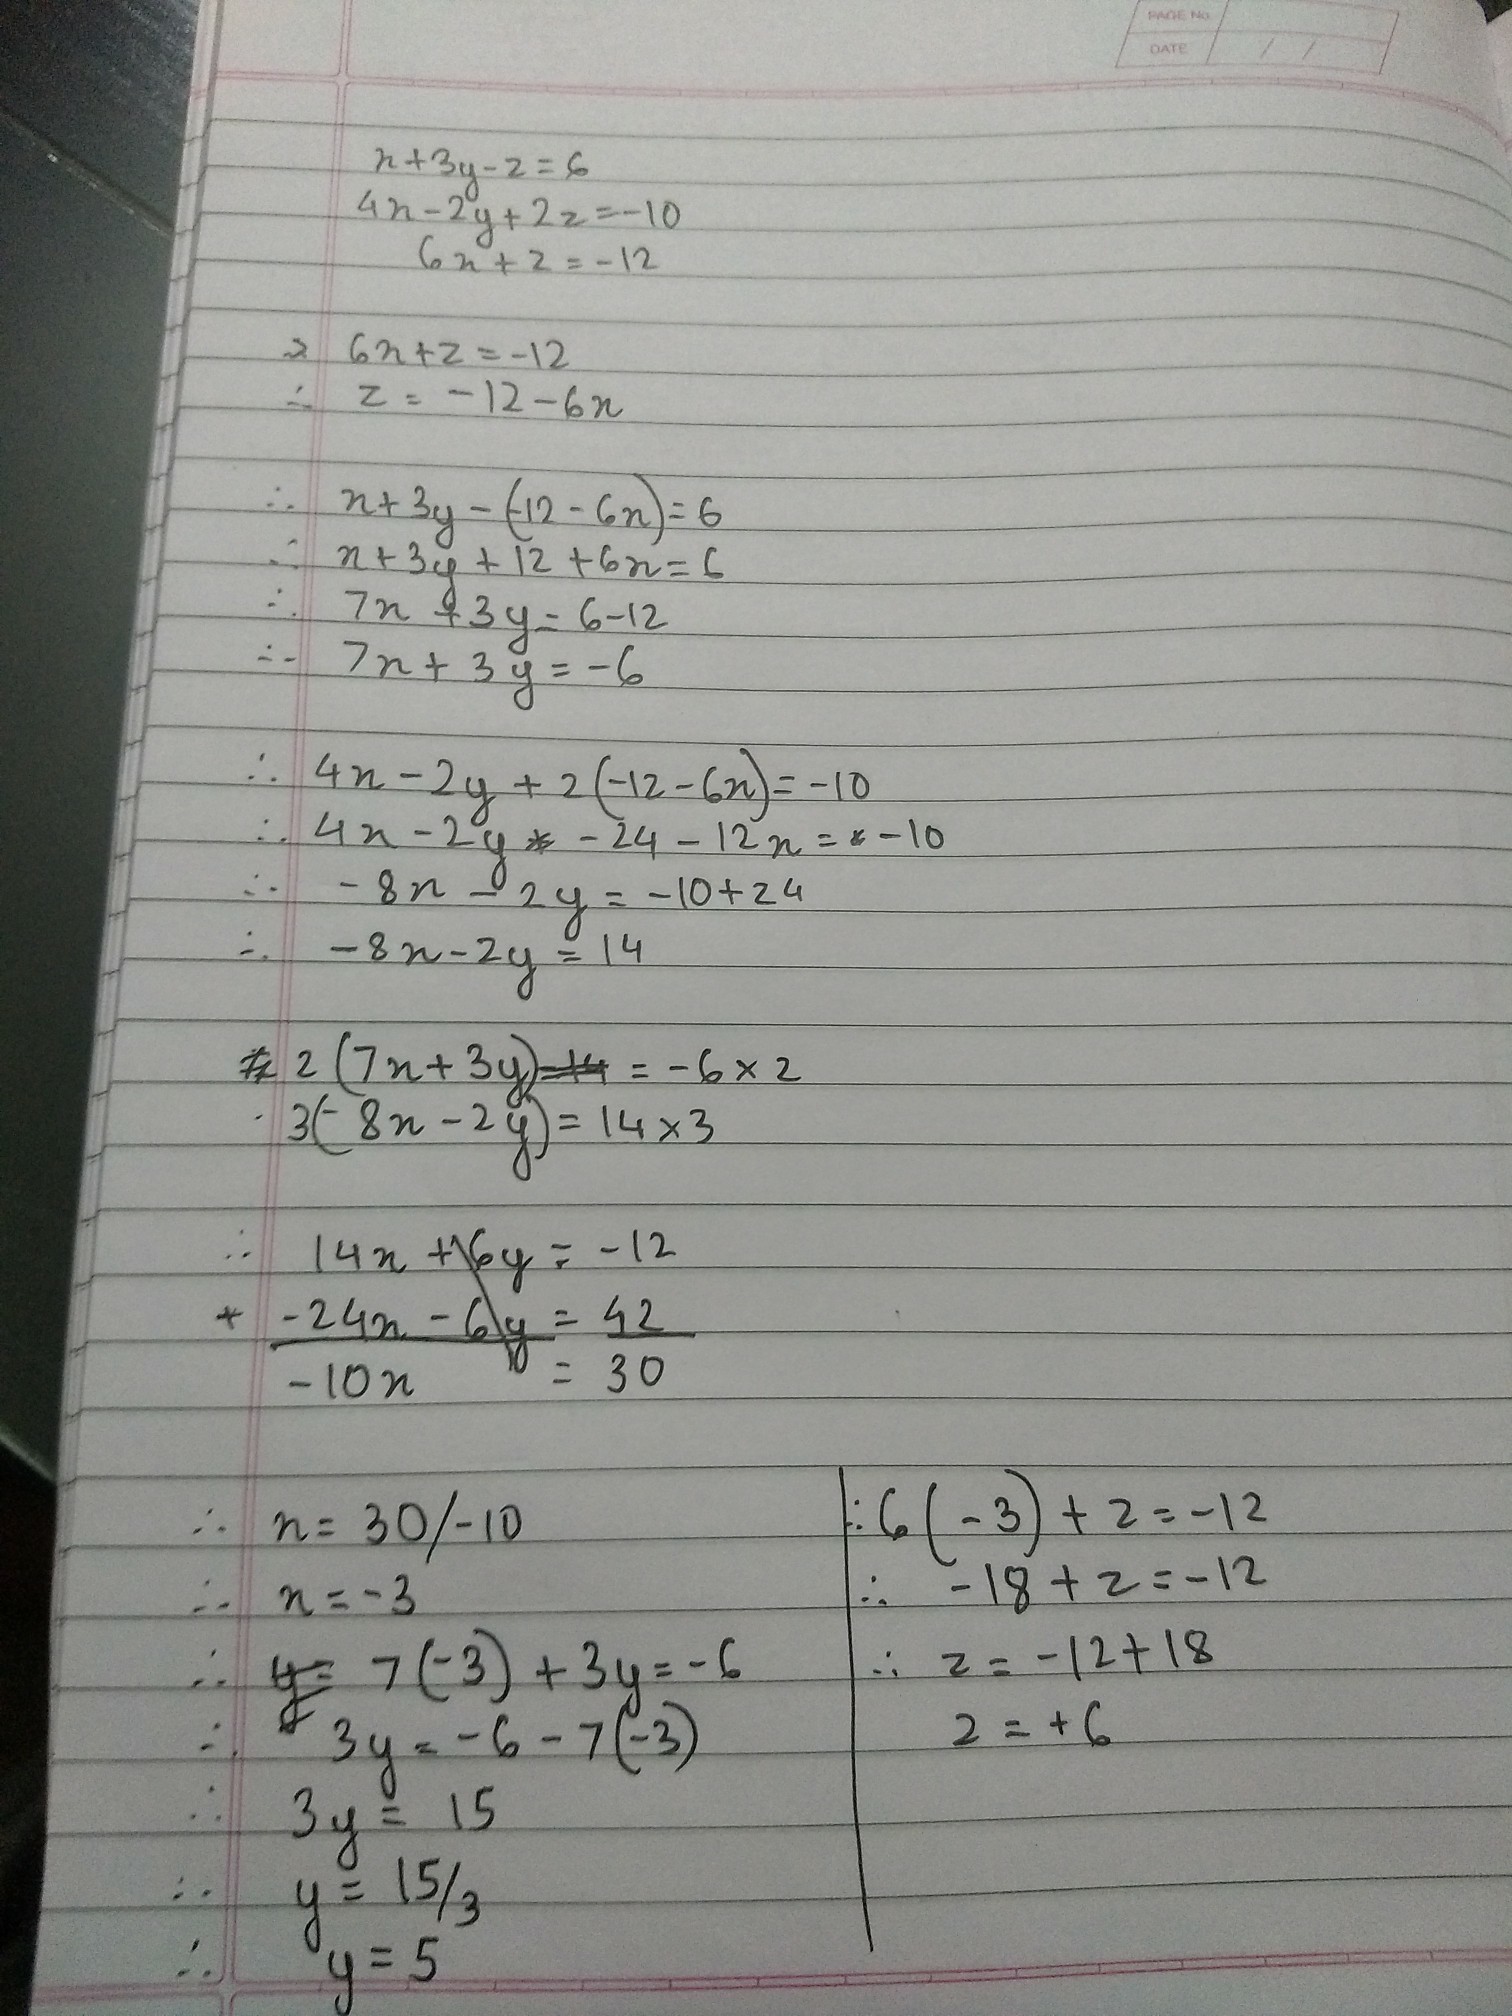 PAGE No.
DATE / /
x+3y-z=6
4x-2y+2z=-10
6x+z=-12
⇒ 6x+z=-12
∴ z=-12-6x
∴ x+3y-(-12-6x)=6
∴ x+3y+12+6x=6
∴ 7x+3y=6-12
∴ 7x+3y=-6
∴ 4x-2y+2(-12-6x)=-10
∴ 4x-2y-24-12x=-10
∴ -8x-2y=-10+24
∴ -8x-2y=14
2(7x+3y)=-6×2
3(-8x-2y)=14×3
∴ 14x+6y=-12
+ -24x-6y=42
-10x=30
∴ x=30/-10
∴ x=-3
∴ 7(-3)+3y=-6
∴ 3y=-6-7(-3)
∴ 3y=15
∴ y=15/3
∴ y=5
∴ 6(-3)+z=-12
∴ -18+z=-12
∴ z=-12+18
z=+6